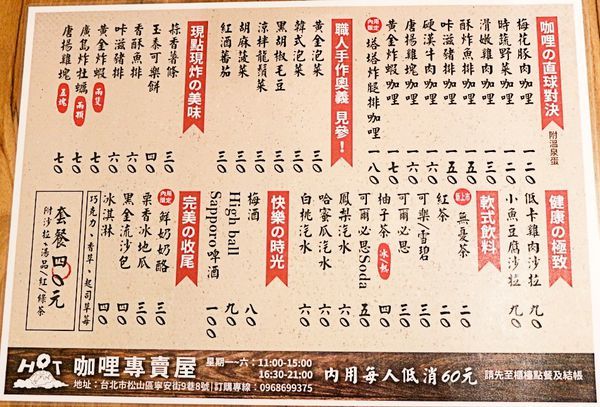 咖哩の直球對決 附溫泉蛋
梅花豚肉咖哩 一二〇
時蔬野菜咖哩 一二〇
滑嫩雞肉咖哩 一三〇
酥炸魚排咖哩 一五〇
咔滋豬排咖哩 一五〇
硬漢牛肉咖哩 一六〇
唐揚雞塊咖哩 一六〇
黃金炸蝦咖哩 一七〇
內用限定 塔塔炸腿排咖哩 一八〇
職人手作奧義 見參！
黃金泡菜 三〇
韓式泡菜 三〇
黑胡椒毛豆 三〇
涼拌龍鬚菜 三〇
胡麻菠菜 三〇
紅酒蕃茄 三〇
現點現炸の美味
蒜香薯條 三〇
玉泰可樂餅 四〇
香酥魚排 六〇
咔滋豬排 六〇
黃金炸蝦 兩隻 七〇
廣島炸牡蠣 兩顆 七〇
唐揚雞塊 五塊 七〇
健康の極致
低卡雞肉沙拉 九〇
小魚豆腐沙拉 九〇
軟式飲料
新上市 無憂茶 二〇
紅茶 二〇
可樂/雪碧 三〇
可爾必思 三〇
柚子茶 冰/熱 四〇
可爾必思Soda 五〇
鳳梨汽水 六〇
哈蜜瓜汽水 六〇
白桃汽水 六〇
快樂の時光
梅酒 八〇
High ball 九〇
Sapporo啤酒 一〇〇
完美の收尾
內用限定 鮮奶奶酪 三〇
栗香冰地瓜 三〇
黑金流沙包 四〇
冰淇淋 四〇
巧克力、香草、起司草莓
套餐四〇元
附沙拉、湯品/紅/綠茶
HOT 咖哩專賣屋
星期一-六：11:00-15:00
16:30-21:00
地址：台北市松山區寧安街9巷8號 | 訂購專線：0968699375
內用每人低消60元
請先至櫃檯點餐及結帳